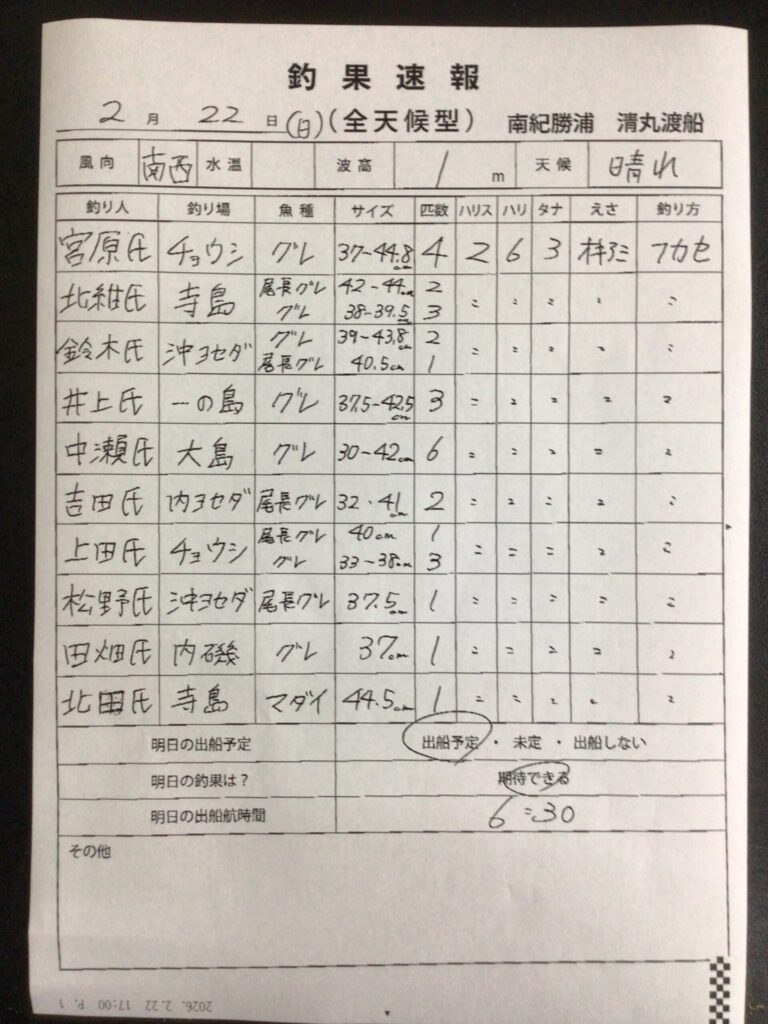 釣果速報
2月22日(日)(全天候型) 南紀勝浦 清丸渡船
風向 南西 水温 波高 1m 天候 晴れ
釣り人 釣り場 魚種 サイズ 匹数 ハリス ハリ タナ えさ 釣り方
宮原氏 チョウシ グレ 37-44.8cm 4 2 6 3 オキアミ フカセ
北紺氏 寺島 尾長グレ 42-44cm 2 〃 〃 〃 〃 〃
グレ 38-39.5cm 3
鈴木氏 沖ヨセダ グレ 39-43.8cm 2 〃 〃 〃 〃 〃
尾長グレ 40.5cm 1
井上氏 一の島 グレ 37.5-42.5cm 3 〃 〃 〃 〃 〃
中瀬氏 大島 グレ 30-42cm 6 〃 〃 〃 〃 〃
吉田氏 内ヨセダ 尾長グレ 32・41cm 2 〃 〃 〃 〃 〃
上田氏 チョウシ 尾長グレ 40cm 1 〃 〃 〃 〃 〃
グレ 33-38cm 3
松野氏 沖ヨセダ 尾長グレ 37.5cm 1 〃 〃 〃 〃 〃
田畑氏 内磯 グレ 37cm 1 〃 〃 〃 〃 〃
北田氏 寺島 マダイ 44.5cm 1 〃 〃 〃 〃 〃
明日の出船予定 出船予定・未定・出船しない
明日の釣果は? 期待できる
明日の出船航時間 6:30
その他
2026. 2.22 17:00 P. 1